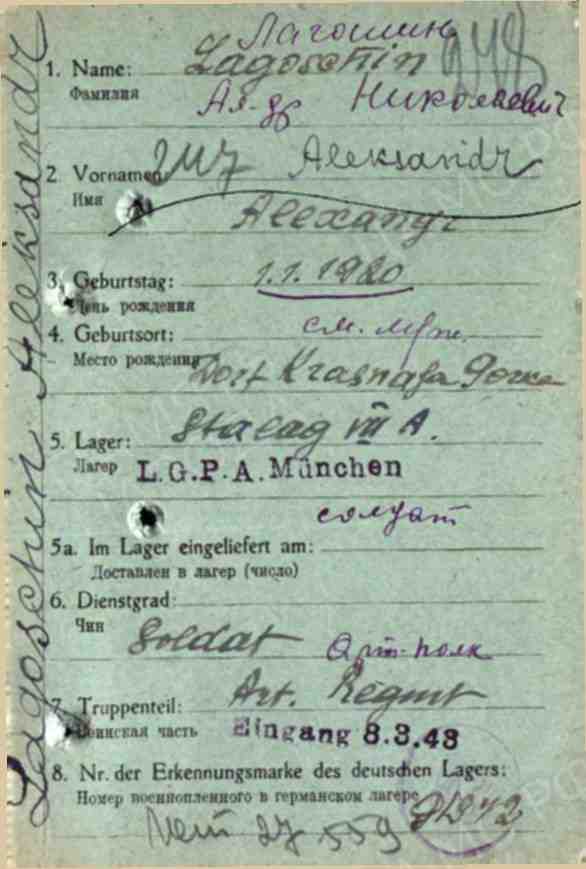 Лагошин
1. Name: Lagoschin
Фамилия
Ал-др Николаевич
2. Vornamen Aleksandr
Имя
Alexandr
3. Geburtstag: 1.1.1920
День рождения
4. Geburtsort:
Место рождения Dorf Krasnaja Gorka
5. Lager: Stalag VII A.
Лагер L.G.P.A. München
солдат
5a. Im Lager eingeliefert am:
Доставлен в лагер (число)
6. Dienstgrad:
Чин Soldat
Арт-полк
7. Truppenteil: Art. Regmt
Воинская часть Eingang 8.3.43
8. Nr. der Erkennungsmarke des deutschen Lagers:
Номер военнопленного в германском лагере
27 559
Lagoschin Aleksandr